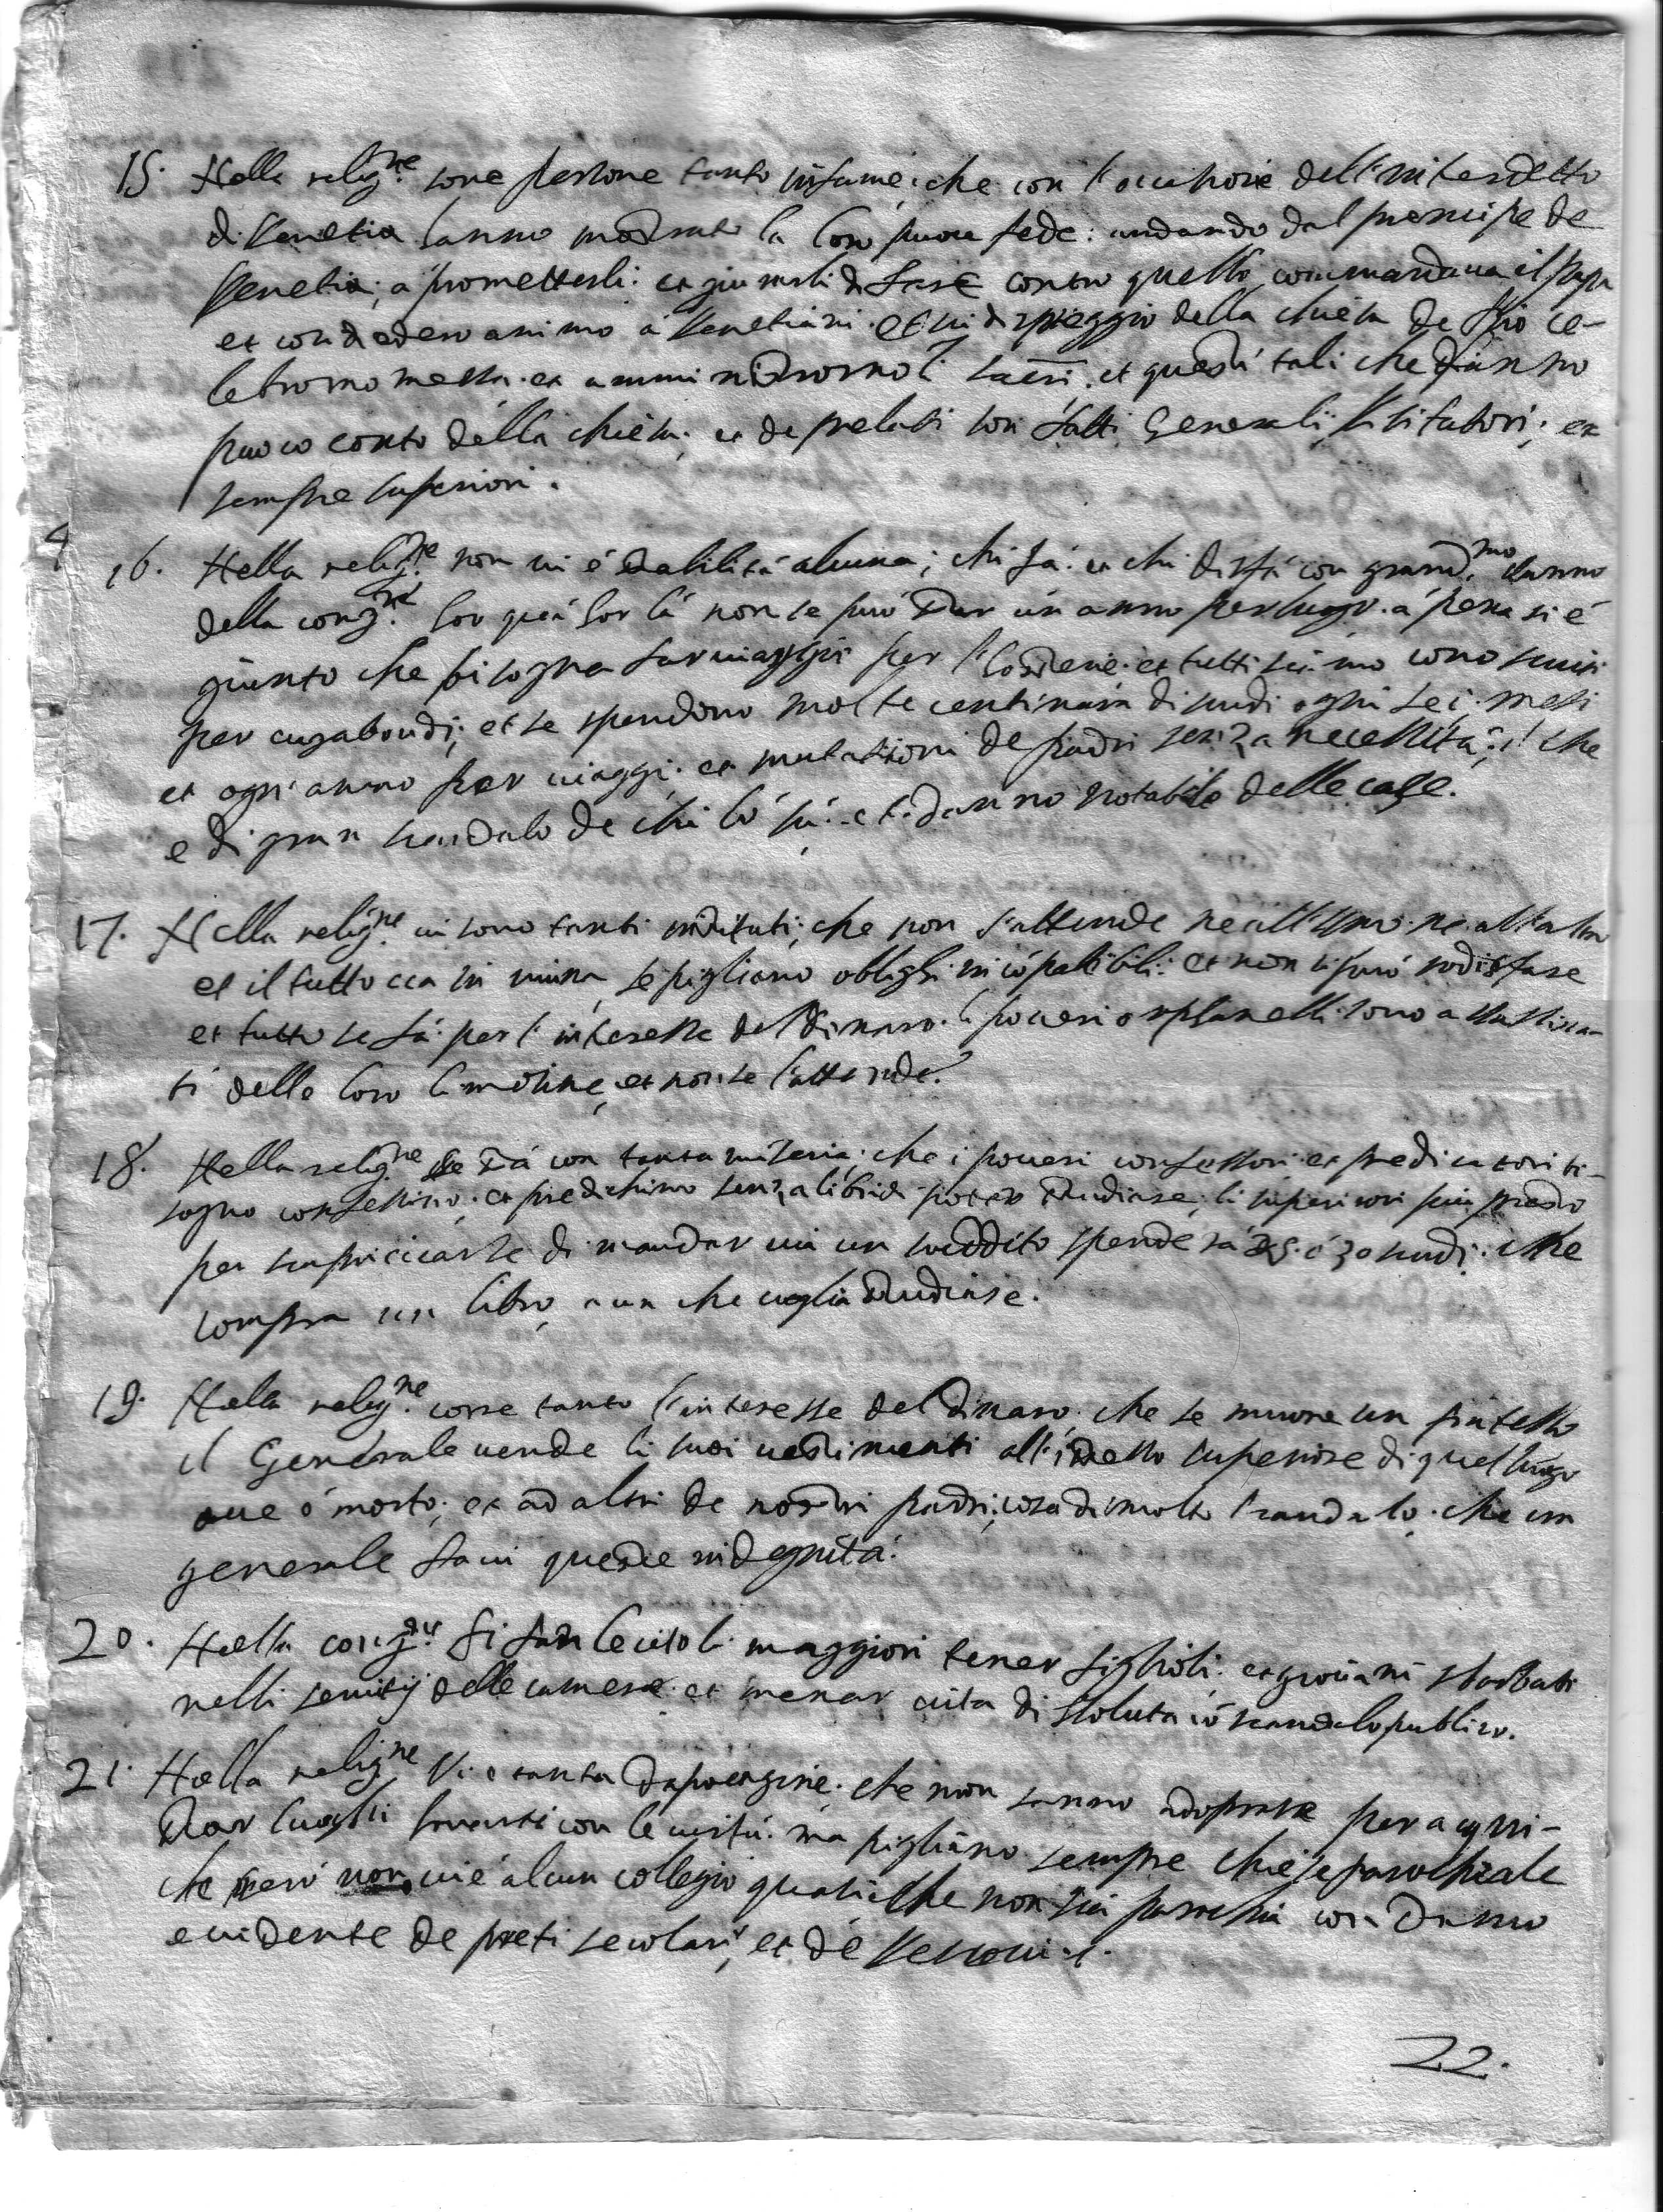 15. Nella relig.ne sono persone tanto infame, che con l'occasione dell'interdetto
di Venetia hanno mostrato la loro puoca fede: andando dal prencipe de
Venetia; a prometterli: et giurarli di fare contro quello commandava il Papa
et con diedero animo a Venetiani. et in dispreggio della chiesa de Dio ce-
lebrorno messa. et amministrorno li sacri. et questi tali che fanno
puoco conto della chiesa; et de prelati son fatti Generali, Visitatori; et
sempre superiori.
16. Nella relig.ne non vi é stabilitá alcuna; chi fá: et chi disfá con grand.mo danno
della cong.ne hor quá hor lá non se puó star un anno per luogo. á pena si é
giunto che bisogna far viaggio per l'hosterie. et tutti siamo conosciuti
per vagabondi; et se spendono molte centinaia di scudi ogni sei mesi
et ogni anno per viaggi. et mutationi de padri senza necessitá; il che
e di gran scandalo de chi ló sá. et danno notabile delle case.
17. Nella relig.ne vi sono tanti instituti; che non s'attende ne all'uno. ne all'altro
et il tutto va in ruina, se pigliano oblighi incópatibili: et non si puó sodisfare
et tutto se fá per l'interesse del dinaro. li poveri orphanelli sono assassina-
ti delle loro limosine, et non se l'attende.
18. Nella relig.ne se stá con tanta miseria; che i poveri confessori et predicatori bi-
sogno confessino; et predichino senza libri di poter studiare; li superiori piu presto
per scapricciarse di mandar via un suddito spenderá 25. ó 30 scudi. che
compra un libro, a un che voglia studiare.
19. Nella relig.ne corre tanto l'interesse del dinaro. che se muore un fratello
il Generale vende li suoi vestimenti all'istesso superiore di quel luogo
ove é morto; et ad altri de nostri padri; cosa di molto scandalo. che un
generale facci queste indegnitá.
20. Nella cong.ne si fan lecito li maggiori tener figlioli; et giovani sbarbati
nelli servitij delle camere. et menar vita dissoluta có scandalo publico.
21. Nella relig.ne vi e tanta dapocagine. che non sanno adoprarse per acqui-
star luoghi honesti con le virtú. má pigliano sempre chiese parochiale
che peró non vi é alcun collegio quasi che non sia parochia con danno
evidente de preti secolari, et dé Vescovi.
22.